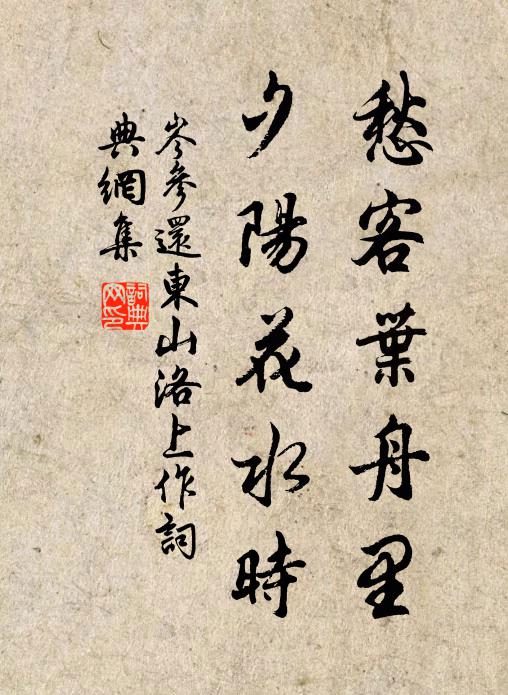 愁客葉舟里
夕陽花水時
岑參還東山洛上作詞
典網集
詞典
网印